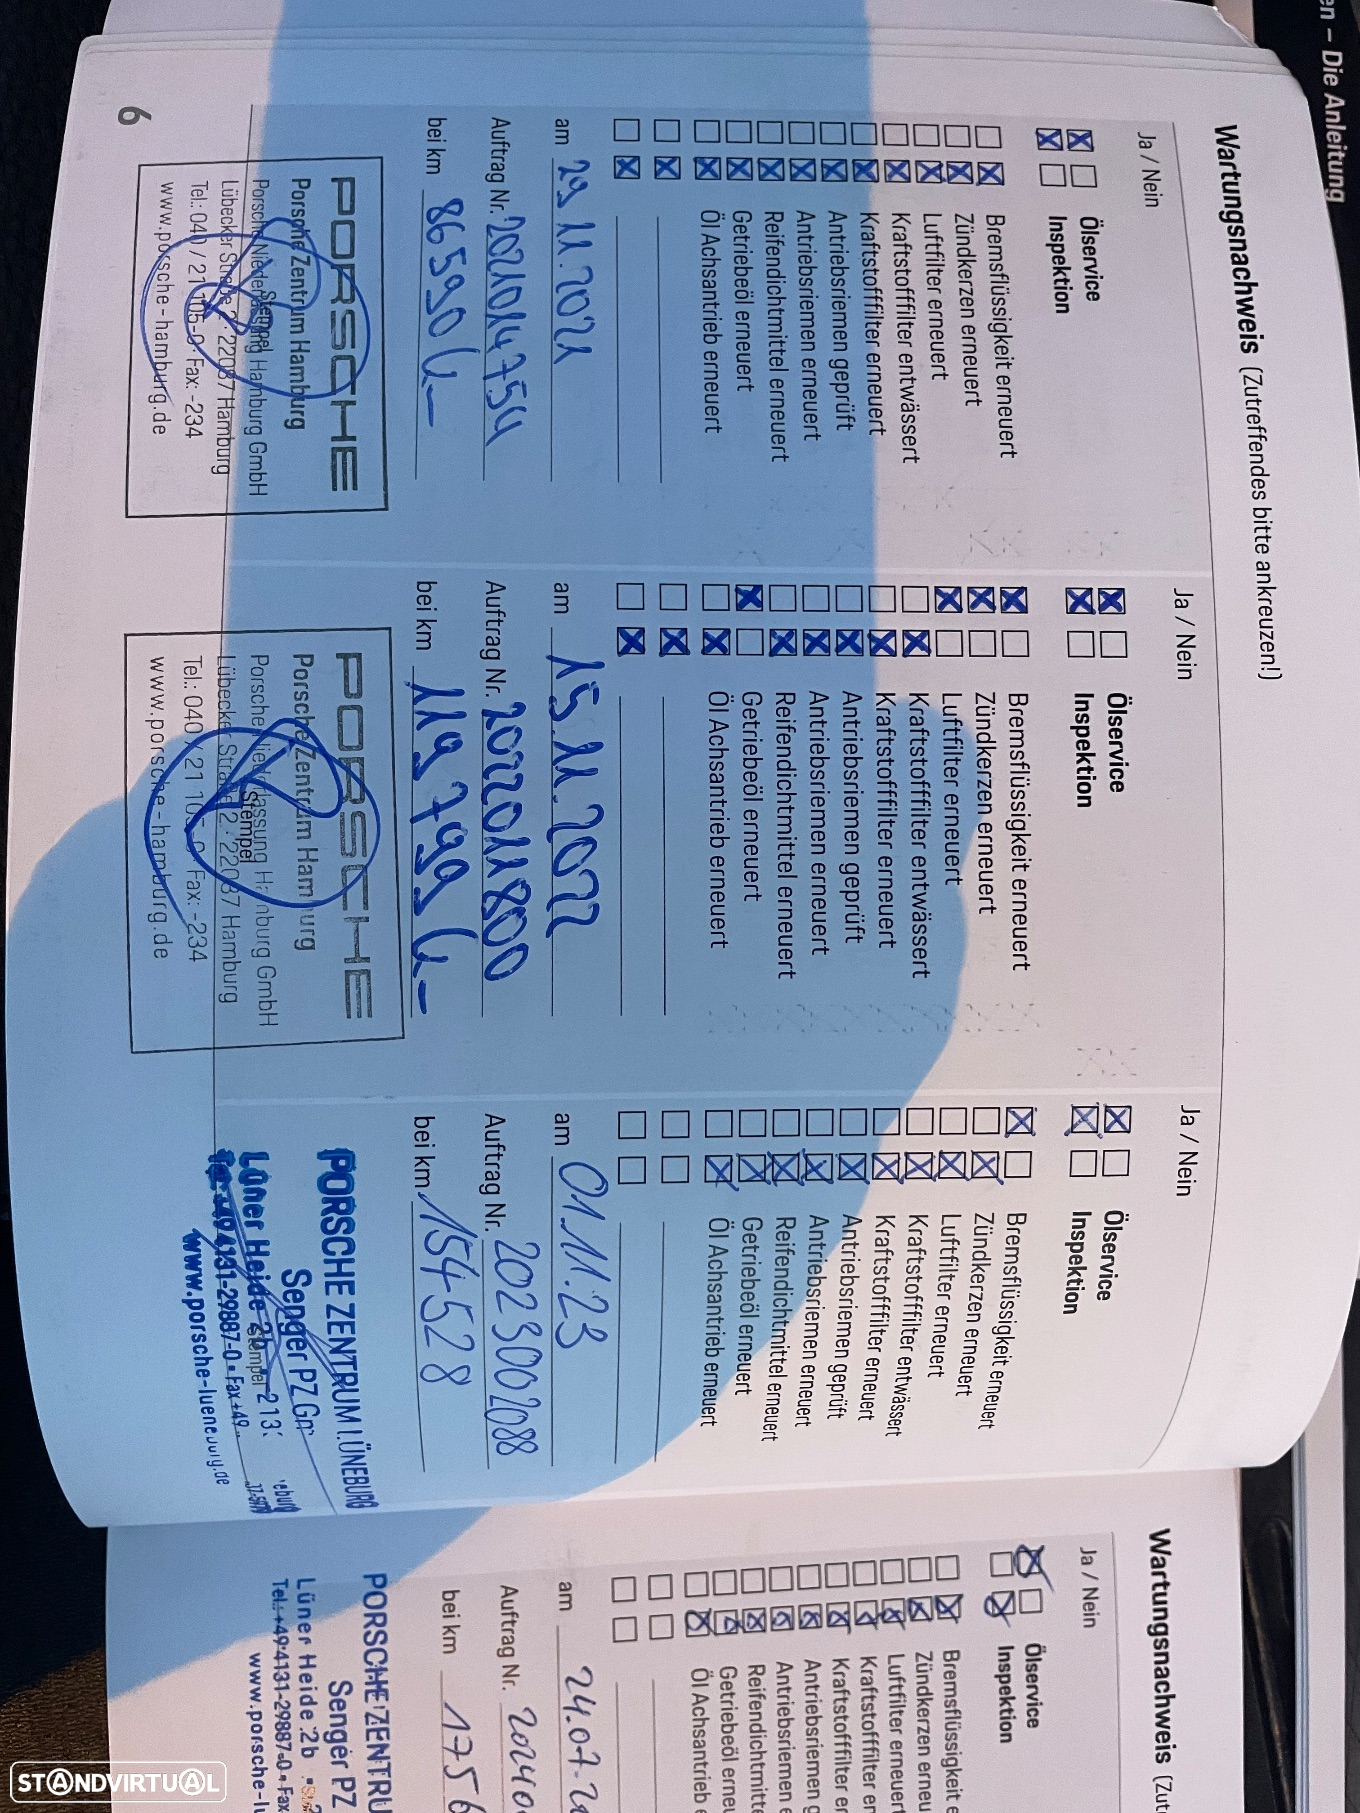 en – Die Anleitung
Wartungsnachweis (Zutreffendes bitte ankreuzen!)
Ja / Nein
Ölservice
Inspektion
Bremsflüssigkeit erneuert
Zündkerzen erneuert
Luftfilter erneuert
Kraftstofffilter entwässert
Kraftstofffilter erneuert
Antriebsriemen geprüft
Antriebsriemen erneuert
Reifendichtmittel erneuert
Getriebeöl erneuert
Öl Achsantrieb erneuert
am 29.11.2021
Auftrag Nr. 2021014754
bei km 86590
PORSCHE
Porsche Zentrum Hamburg
Porsche Niederlassung Hamburg GmbH
Stempel
Lübecker Straße 2 · 22087 Hamburg
Tel.: 040 / 21 105-0 · Fax: -234
www.porsche-hamburg.de
6
Ja / Nein
Ölservice
Inspektion
Bremsflüssigkeit erneuert
Zündkerzen erneuert
Luftfilter erneuert
Kraftstofffilter entwässert
Kraftstofffilter erneuert
Antriebsriemen geprüft
Antriebsriemen erneuert
Reifendichtmittel erneuert
Getriebeöl erneuert
Öl Achsantrieb erneuert
am 15.11.2022
Auftrag Nr. 2022011800
bei km 119799
PORSCHE
Porsche Zentrum Hamburg
Porsche Niederlassung Hamburg GmbH
Stempel
Lübecker Straße 2 · 22087 Hamburg
Tel.: 040 / 21 105-0 · Fax: -234
www.porsche-hamburg.de
Ja / Nein
Ölservice
Inspektion
Bremsflüssigkeit erneuert
Zündkerzen erneuert
Luftfilter erneuert
Kraftstofffilter entwässert
Kraftstofffilter erneuert
Antriebsriemen geprüft
Antriebsriemen erneuert
Reifendichtmittel erneuert
Getriebeöl erneuert
Öl Achsantrieb erneuert
am 01.11.23
Auftrag Nr. 2023002088
bei km 154528
PORSCHE ZENTRUM LÜNEBURG
Senger PZ
Lüner Heide 2b · 213
Stempel
Tel.: +49 4131-29887-0 · Fax +49
www.porsche-lueneburg.de
Wartungsnachweis (Zut
Ja / Nein
Ölservice
Inspektion
Bremsflüssigkeit e
Zündkerzen erneu
Luftfilter erneuert
Kraftstofffilter en
Kraftstofffilter er
Antriebsriemen g
Antriebsriemen e
Reifendichtmitte
Getriebeöl erneu
Öl Achsantrieb e
am 24.07.2
Auftrag Nr. 20240
bei km 1756
PORSCHE ZENTRU
Senger PZ
Lüner Heide 2b
Tel.: +49 4131-29887-0 · Fax
www.porsche-lu
STANDVIRTUAL